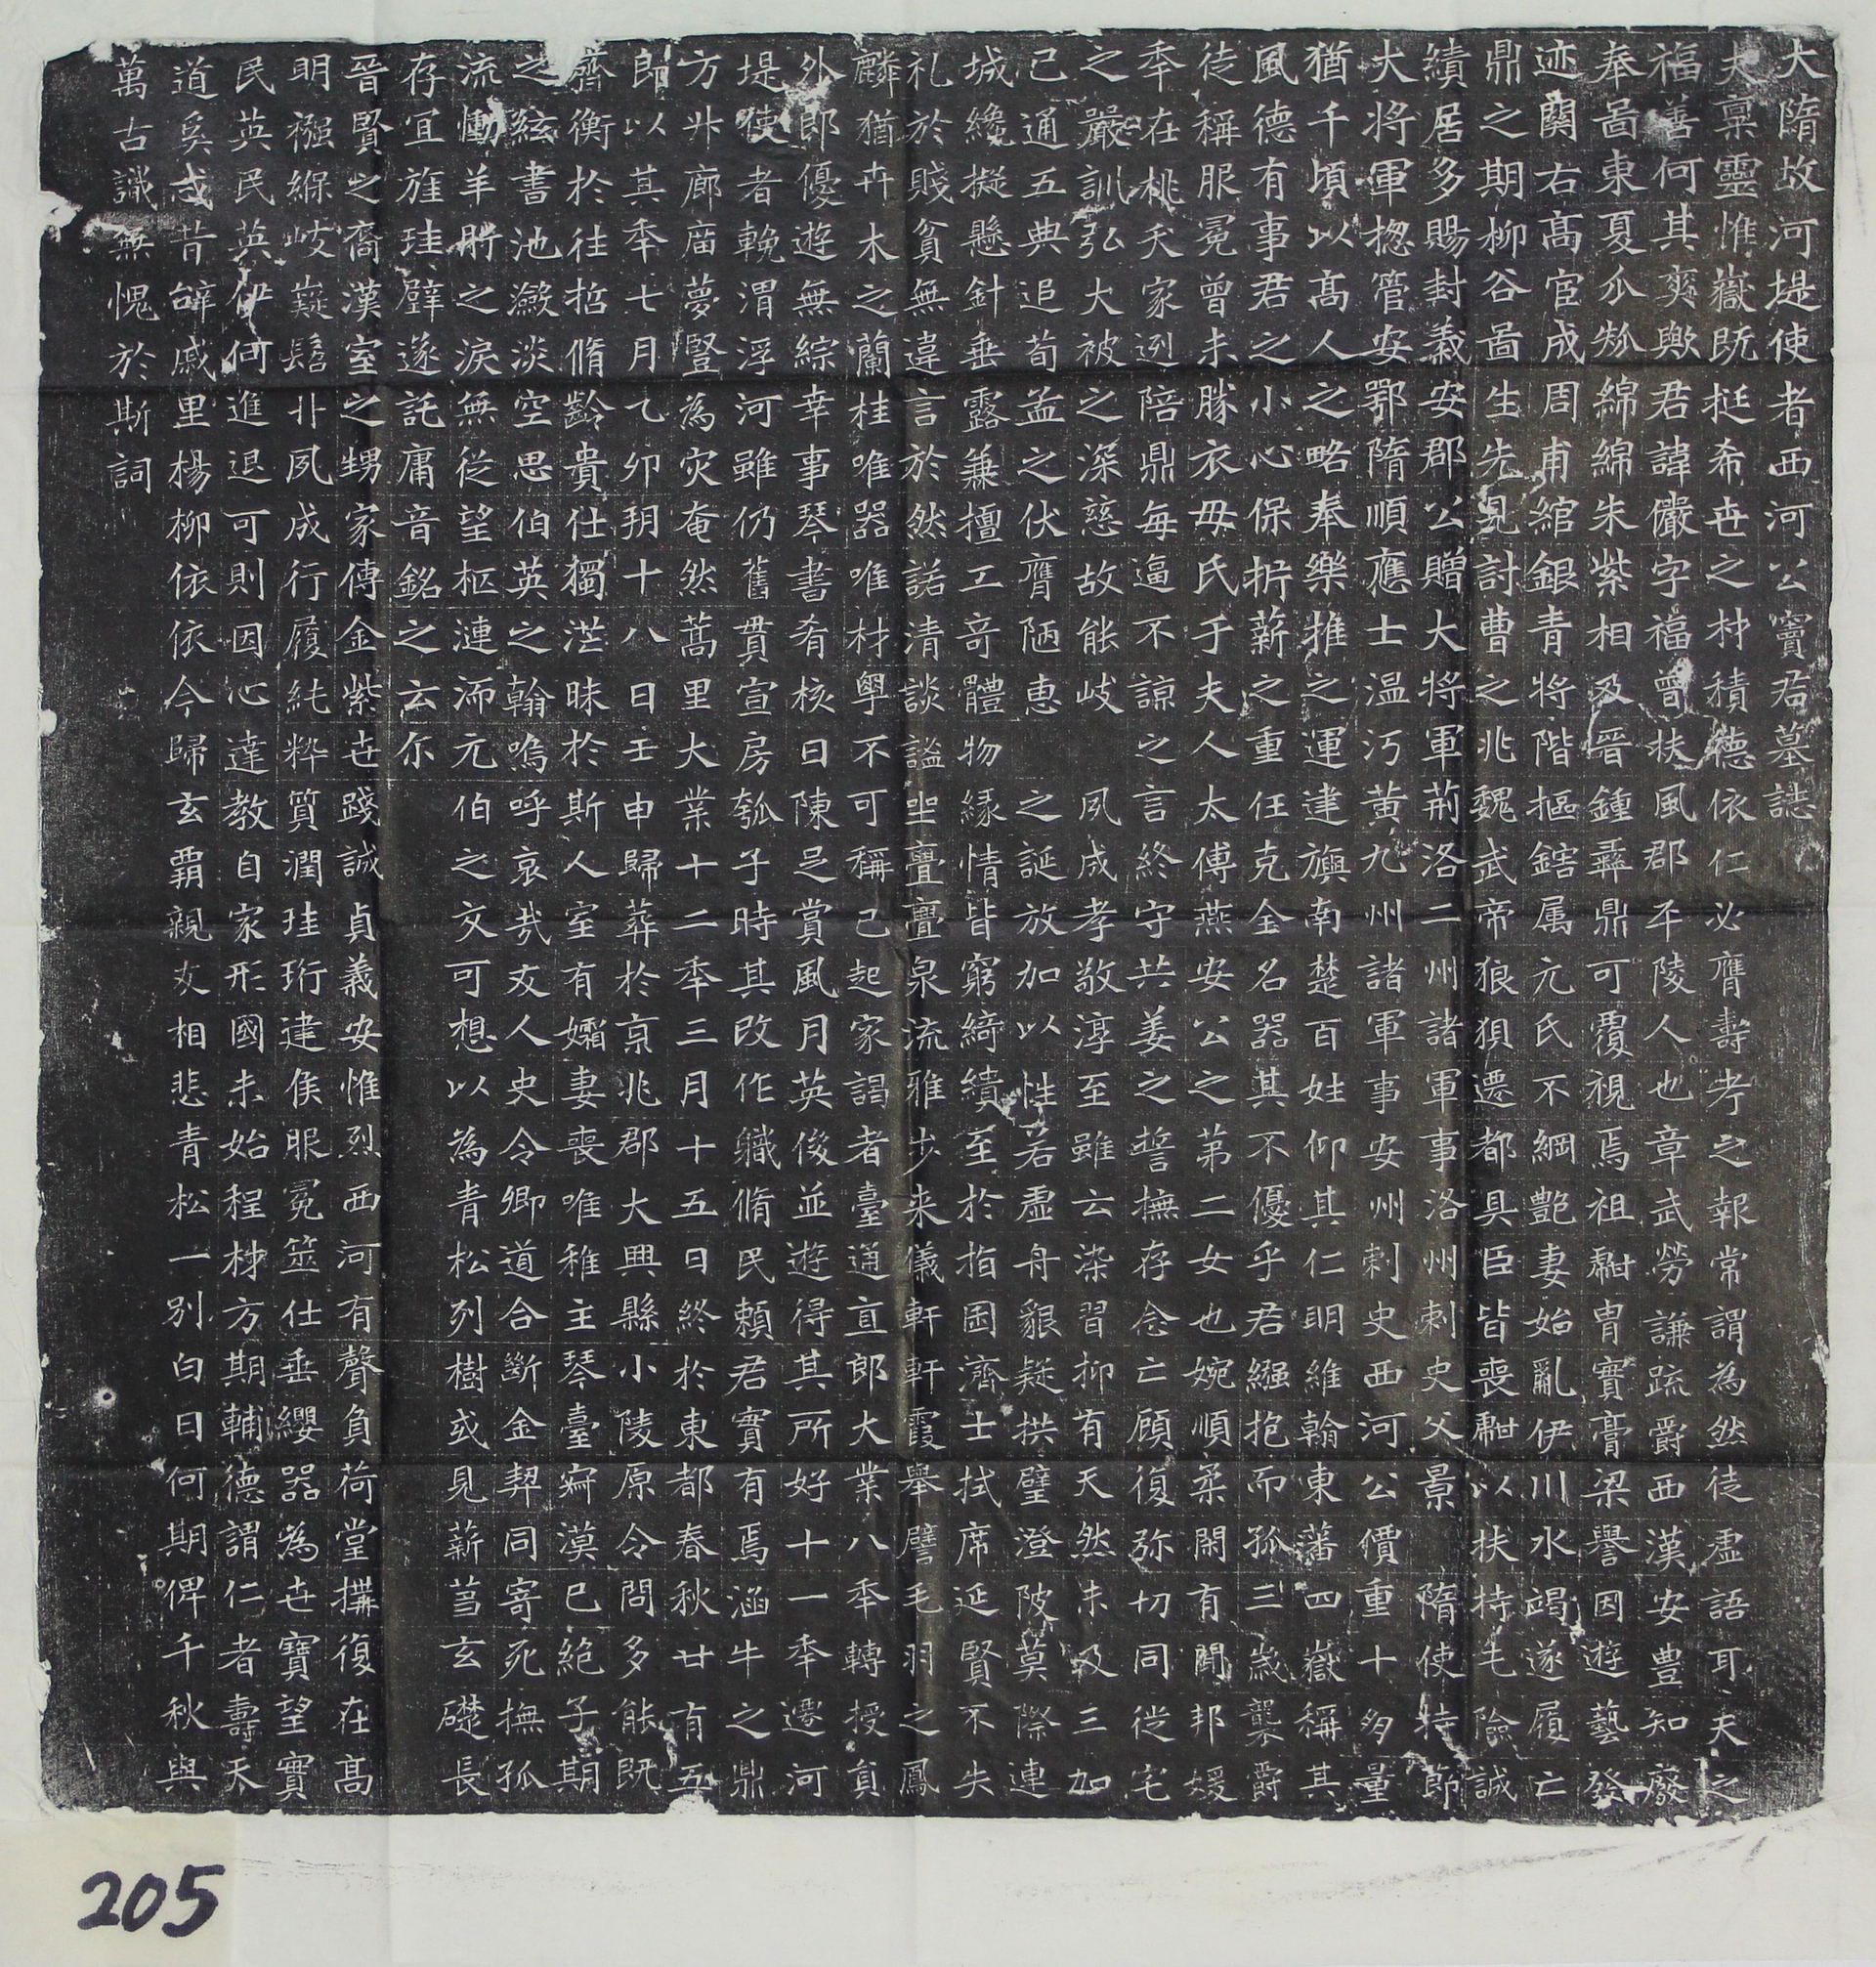 大隋故河堤使者西河公竇君墓誌
夫稟靈惟嶽既挺希世之材積德依仁必膺壽考之報常謂為然徒虛語耳夫之
福善何其爽歟君諱儼字福曾扶風郡平陵人也章武勞謙疏爵西漢安豊知廢
奉啚東夏瓜瓞綿綿朱紫相及晉鍾彝鼎可覆視焉祖冑實膏梁譽因遊藝發
迹關右高官成周甫綰銀青將階摳鎋属元氏不綱艷妻始亂伊川水竭遂履亡
鼎之期柳谷啚生先見討曹之兆魏武帝狼狽遷都具臣皆喪以扶持屯險誠
績居多賜封義安郡公贈大將軍荊洛二州諸軍事洛州刺史父景 隋使持節
大將軍揔管安鄂隋順應士温沔黃九州諸軍事安州刺史西河公價重十夠量
猶千頃以高人之略奉樂推之運建旟南楚百姓仰其仁明維翰東藩四嶽稱其
風德有事君之小心保折薪之重任克全名器其不優乎君繦抱而孤三歲襲爵
徒稱服冕曾未勝衣毋氏于夫人太傅燕安公之第二女也婉順柔閑有聞邦媛
秊在桃夭家迾陪鼎每逼不諒之言終守共姜之誓撫存念亡顧復弥切同徙宅
之嚴訓弘大被之深慈故能岐 夙成孝敬淳至雖云染習抑有天然未及三加
已通五典追荀孟之伏膺陋惠 之誕放加以性若虛舟貌疑拱璧澄陂莫際連
城纔擬懸針垂露兼擅工奇體物緣情皆窮綺縟至於指囷濟士拭席延賢不失
礼於賤貧無違言於然諾清談謐坐亹亹泉流雅步来儀軒軒霞舉譬毛羽之鳳
麟猶卉木之蘭桂唯器唯材粤不可稱已起家謁者臺通直郎大業八秊轉授員
外郎優遊無綜幸事琴書肴核日陳足賞風月英俊並遊得其所好十一秊遷河
堤使者輓渭浮河雖仍舊貫宣房瓠子時其改作軄脩民賴君實有焉涵牛之鼎
方升廊庿夢豎為灾奄然蒿里大業十二秊三月十五日終於東都春秋廿有五
即以其秊七月乙卯朔十八日壬申歸葬於京兆郡大興縣小陵原令問多能既
齊衡於往哲脩齡貴仕獨茫昧於斯人室有孀妻喪唯稚主琴臺寂漠已絕子期
之絃書池瀲淡空思伯英之翰嗚呼哀哉友人史令卿道合斷金契同寄死撫孤
流慟羊肸之淚無從望柩漣洏元伯之交可想以為青松列樹或見薪蒭玄礎長
存宜旌珪璧遂託庸音銘之云尔
晉賢之裔漢室之甥家傳金紫世踐誠貞義安惟烈西河有聲負荷堂構復在髙
明襁緥岐嶷髫丱夙成行履純粋質潤珪珩建侯服冕筮仕垂纓器為世寶望實
民英民英伊何進退可則因心達教自家形國未始程材方期輔德謂仁者壽天
道奚忒昔辭戚里楊柳依依今歸玄霸親友相悲青松一別白日何期俾千秋與
萬古識無愧於斯詞
205